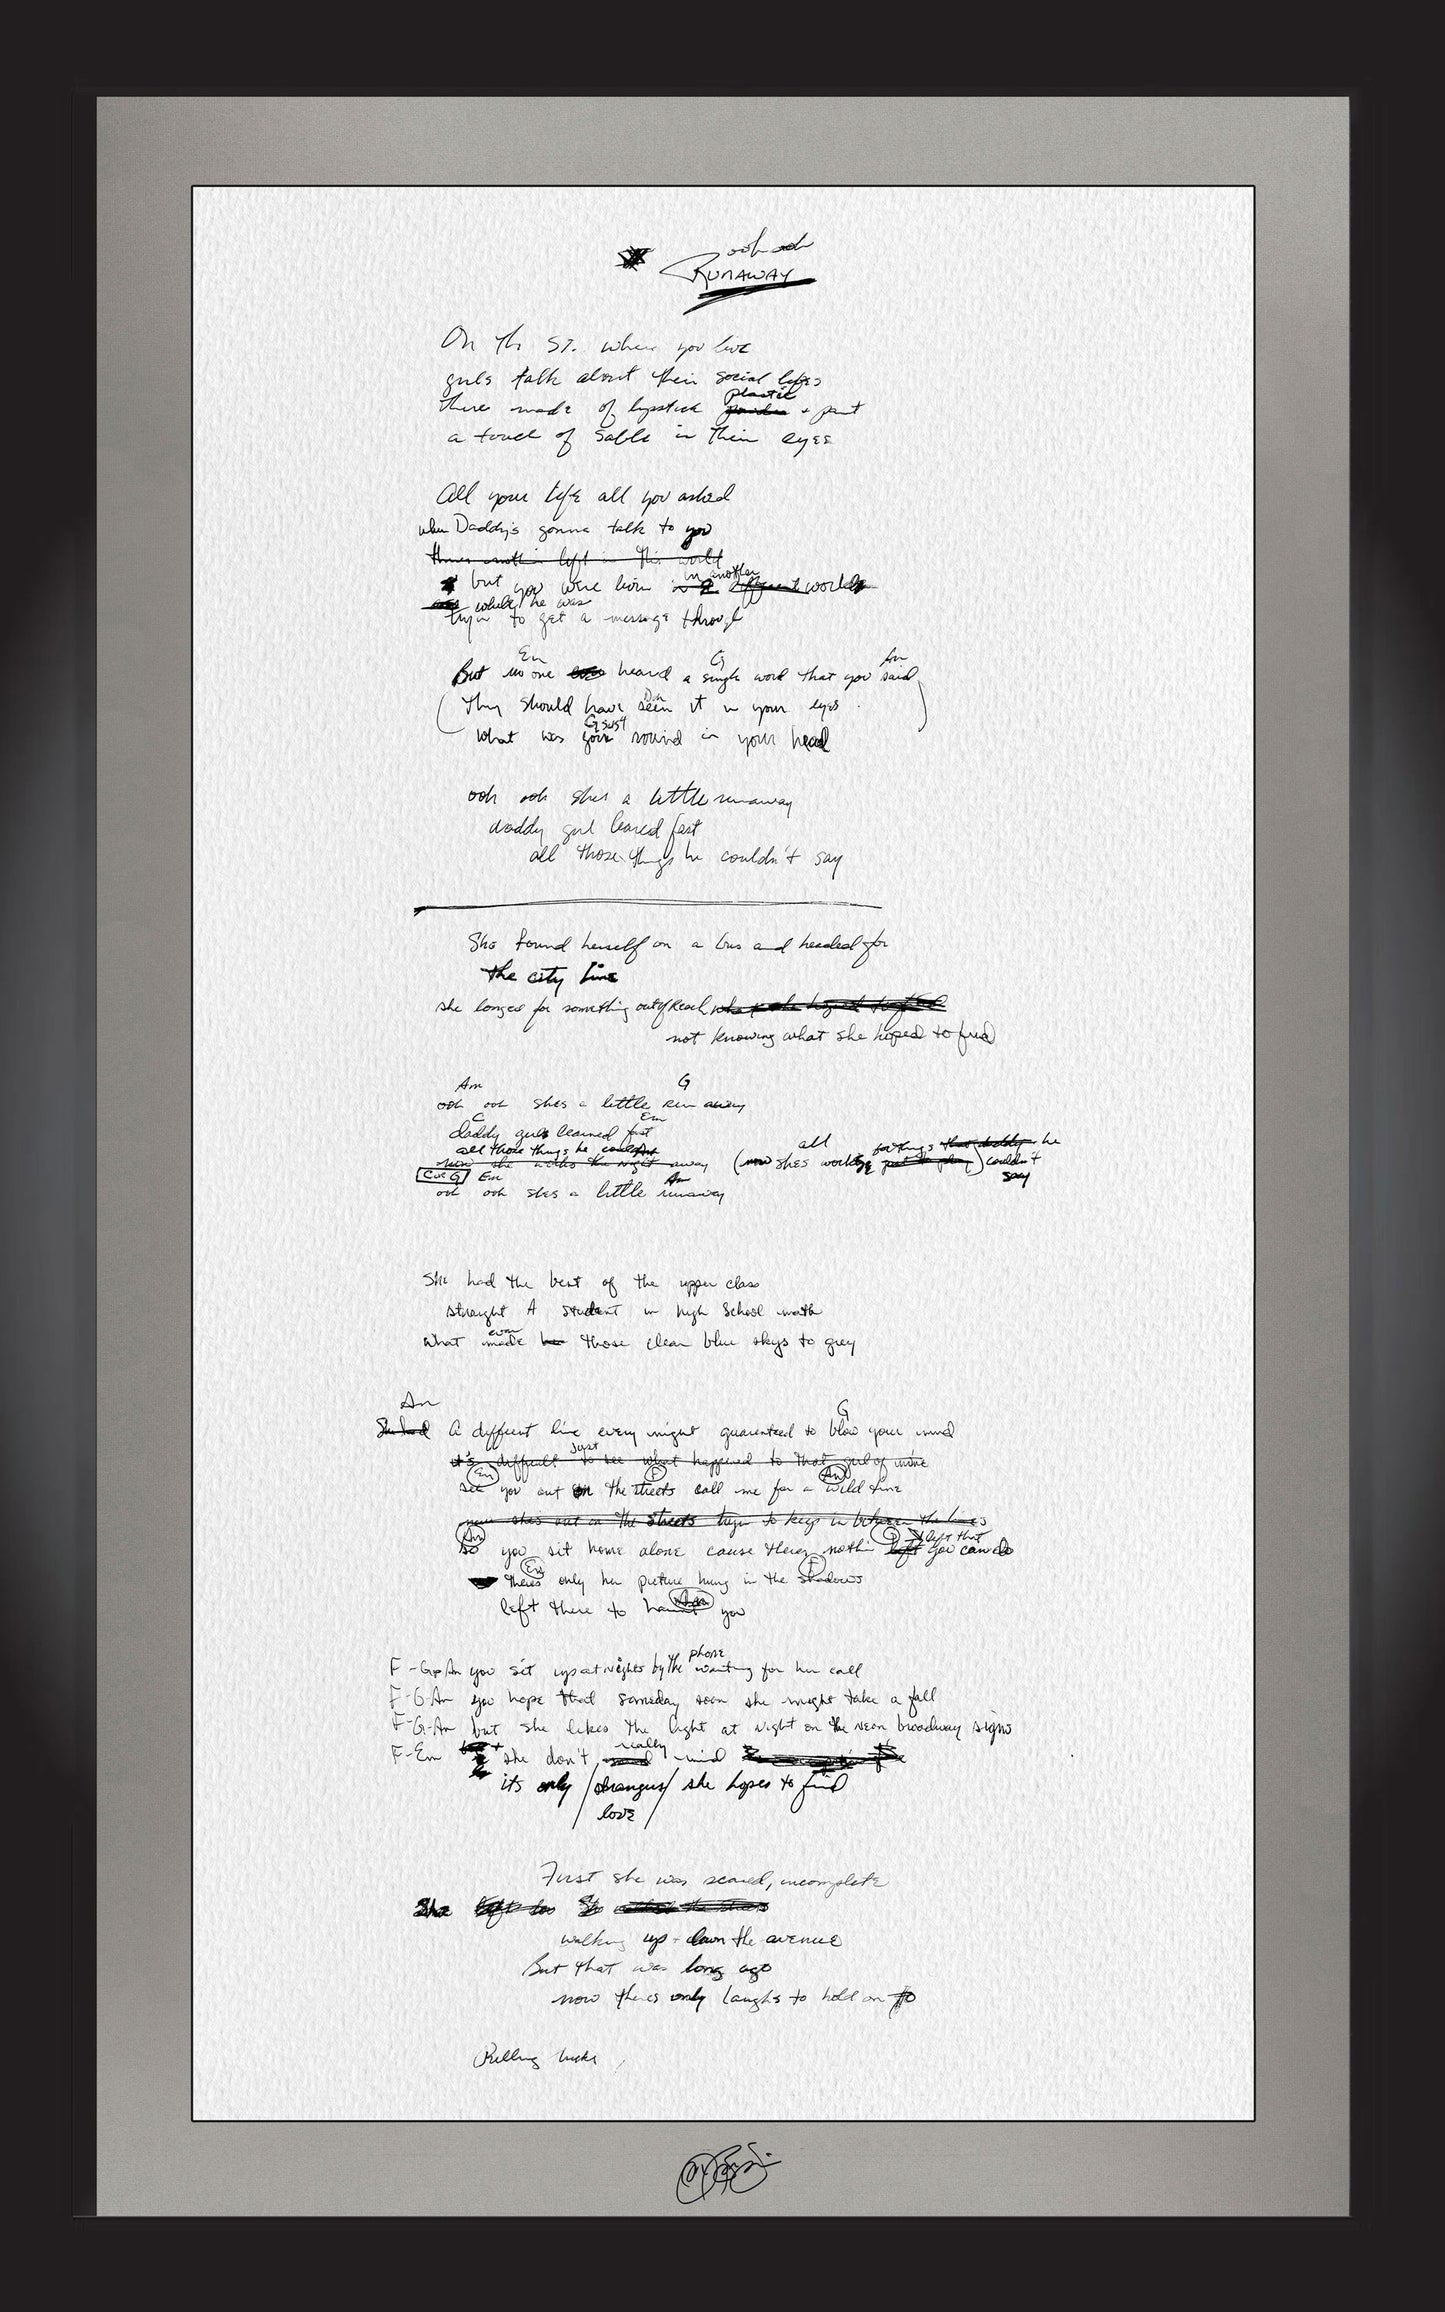 ooh ooh
RUNAWAY
On Th ST. where you live
girls talk about their social lifes
there made of lipstick plastic powder + paint
a touch of sable in their eyes
All your life all you asked
when Daddy's gonna talk to you
theres nothin left in this world
but you were livin in another different world
while he was
tryin to get a message through
Em G Am
But no one heard a single word that you said
Dm
They should have seen it in your eyes
Gsus4
what was goin round in your head
ooh ooh shes a little runaway
daddy girl learned fast
all those things he couldn't say
She found herself on a bus and headed for
the city line
she longed for something out of Reach
not knowing what she hoped to find
Am G
ooh ooh shes a little run away
C Em
daddy girls learned fast
all those things he couldn't
now she works the night away (now shes all for things that daddy he couldn't say
C or G Em Am
ooh ooh shes a little runaway
She had the best of the upper class
straight A student in high School math
what even made those clear blue skys to grey
Am G
She had A different line every night guaranteed to blow your mind
it's difficult just to see what happened to that girl of mine
Em F Am
see you out on the streets call me for a wild time
now shes out on the streets tryin to keep in between the lines
Am G left that
so you sit home alone cause theres nothin left you can do
Em F
theres only her picture hung in the shadows
Am
left there to haunt you
phone
F-G-Am you sit up at nights by the waiting for her call
F-G-Am you hope that someday soon she might take a fall
F-G-Am but she likes the light at night on the neon broadway signs
F-Em she don't really mind
its only / strangers / she hopes to find
love
First she was scared, incomplete
She
walking up + down the avenue
But that was long ago
now theres only laughs to hold on to